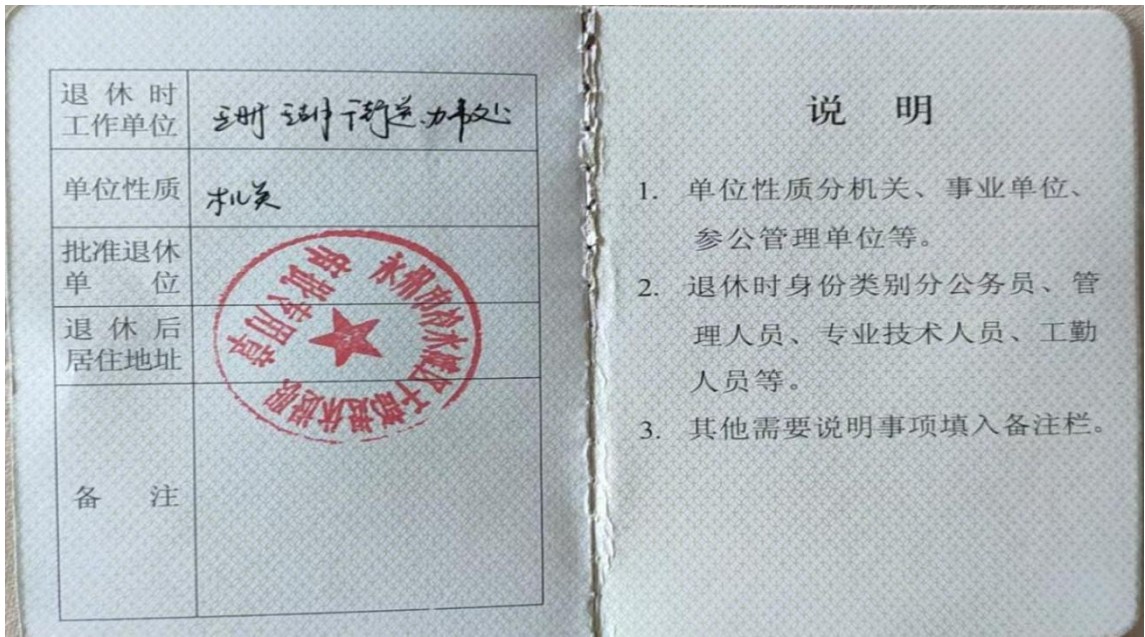 退休时
工作单位
街道办事处
单位性质
机关
批准退休
单位
退休后
居住地址
备注
永州市冷水滩区干部退休退职
审批专用章
说明
1. 单位性质分机关、事业单位、
参公管理单位等。
2. 退休时身份类别分公务员、管
理人员、专业技术人员、工勤
人员等。
3. 其他需要说明事项填入备注栏。